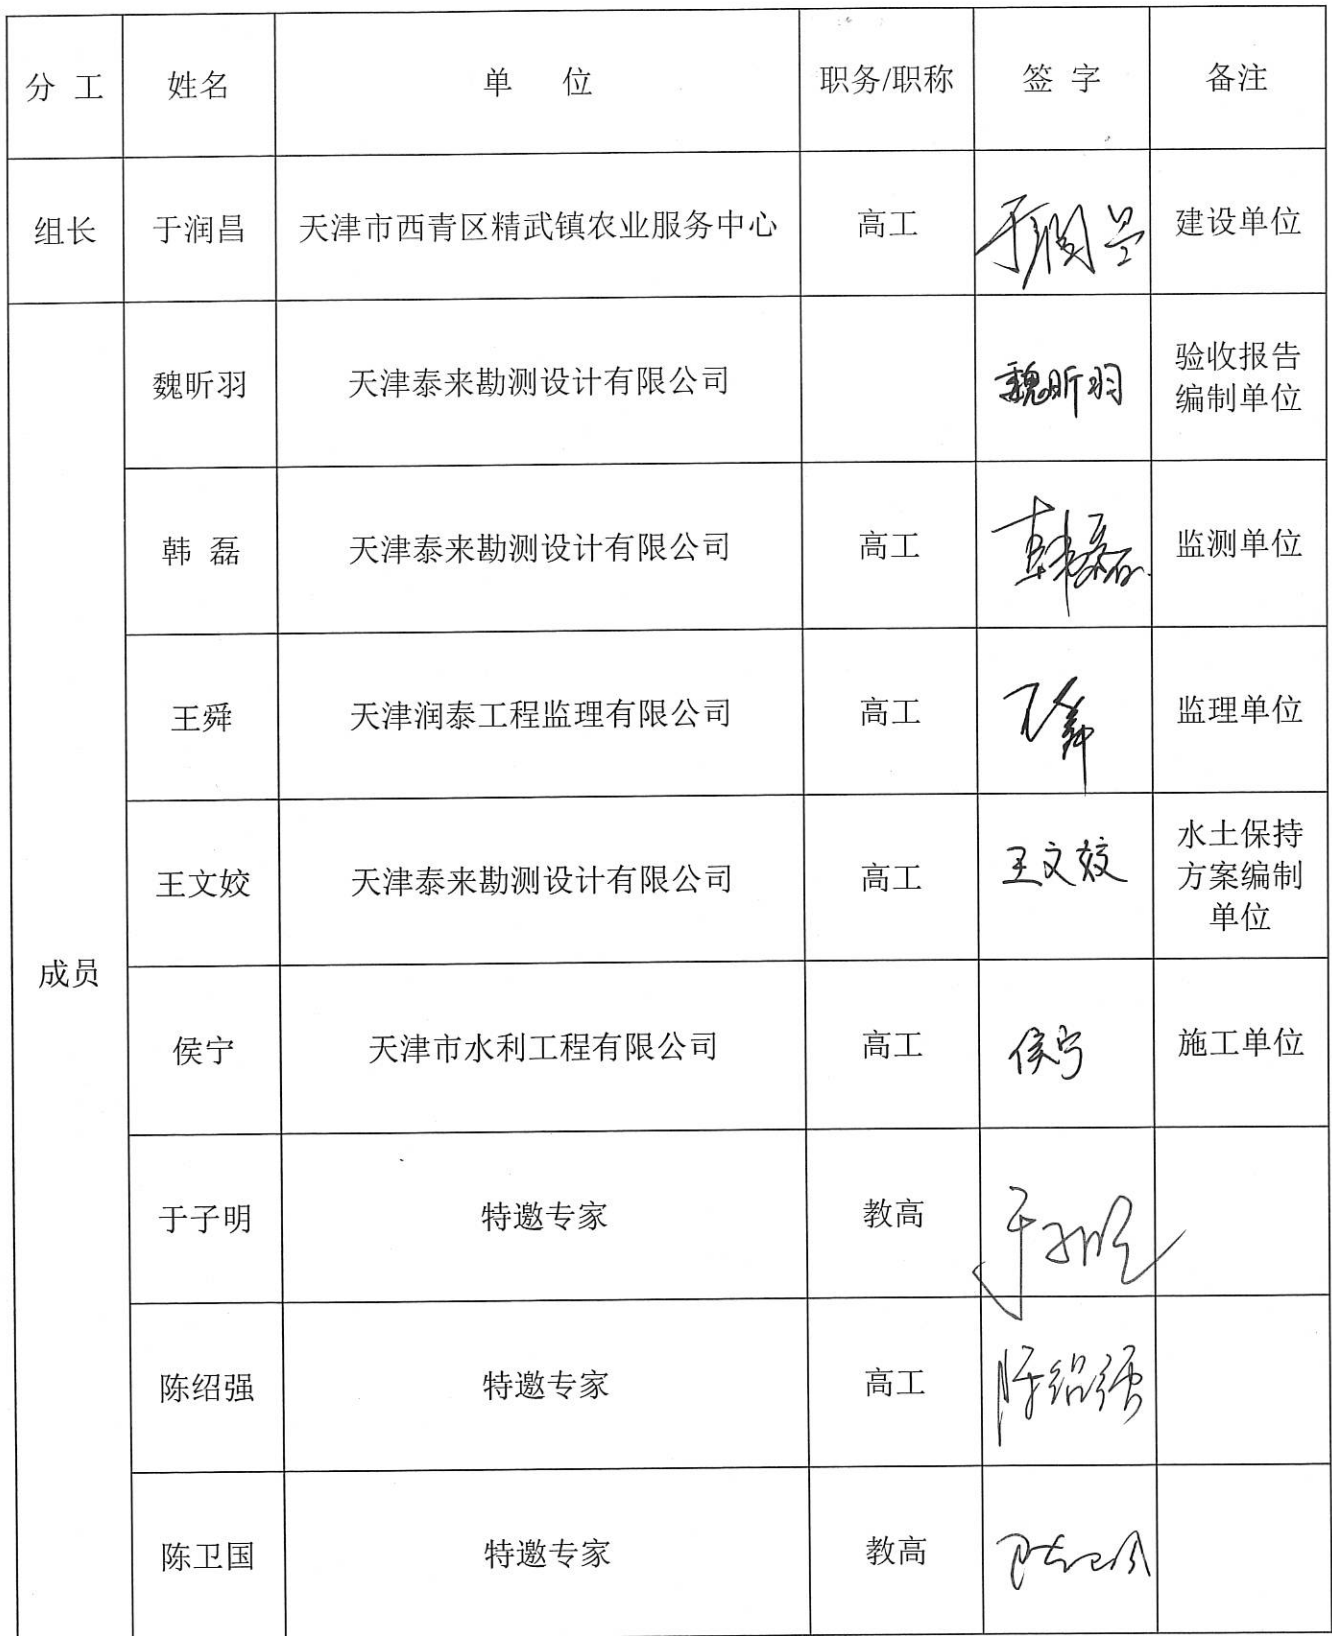 分 工 姓名 单 位 职务/职称 签 字 备注
组长 于润昌 天津市西青区精武镇农业服务中心 高工 于润昌 建设单位
魏昕羽 天津泰来勘测设计有限公司 魏昕羽 验收报告
编制单位
韩 磊 天津泰来勘测设计有限公司 高工 韩磊 监测单位
王舜 天津润泰工程监理有限公司 高工 王舜 监理单位
王文姣 天津泰来勘测设计有限公司 高工 王文姣 水土保持
方案编制
单位
成员
侯宁 天津市水利工程有限公司 高工 侯宁 施工单位
于子明 特邀专家 教高 于子明
陈绍强 特邀专家 高工 陈绍强
陈卫国 特邀专家 教高 陈卫国